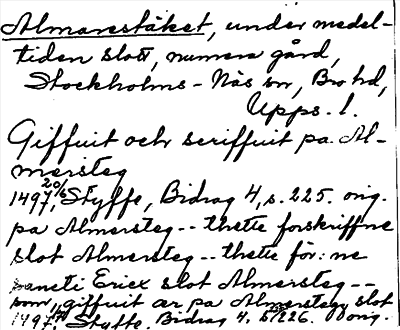 Almarestäket, under medel-
tiden slott, numera gård,
Stockholms-Näs sn, Bro hd,
Upps. l.
Giffuit och scriffuit pa Al-
mersteg
1497 20/6, Styffe, Bidrag 4, s. 225. orig.
pa Almersteg -- thette forskriffne
slot Almersteg -- thette för: ne
sancti Ericx slot Almersteg --
som, giffuit ær pa Almersteg slot
1497 Styffe, Bidrag 4, s. 226. orig.